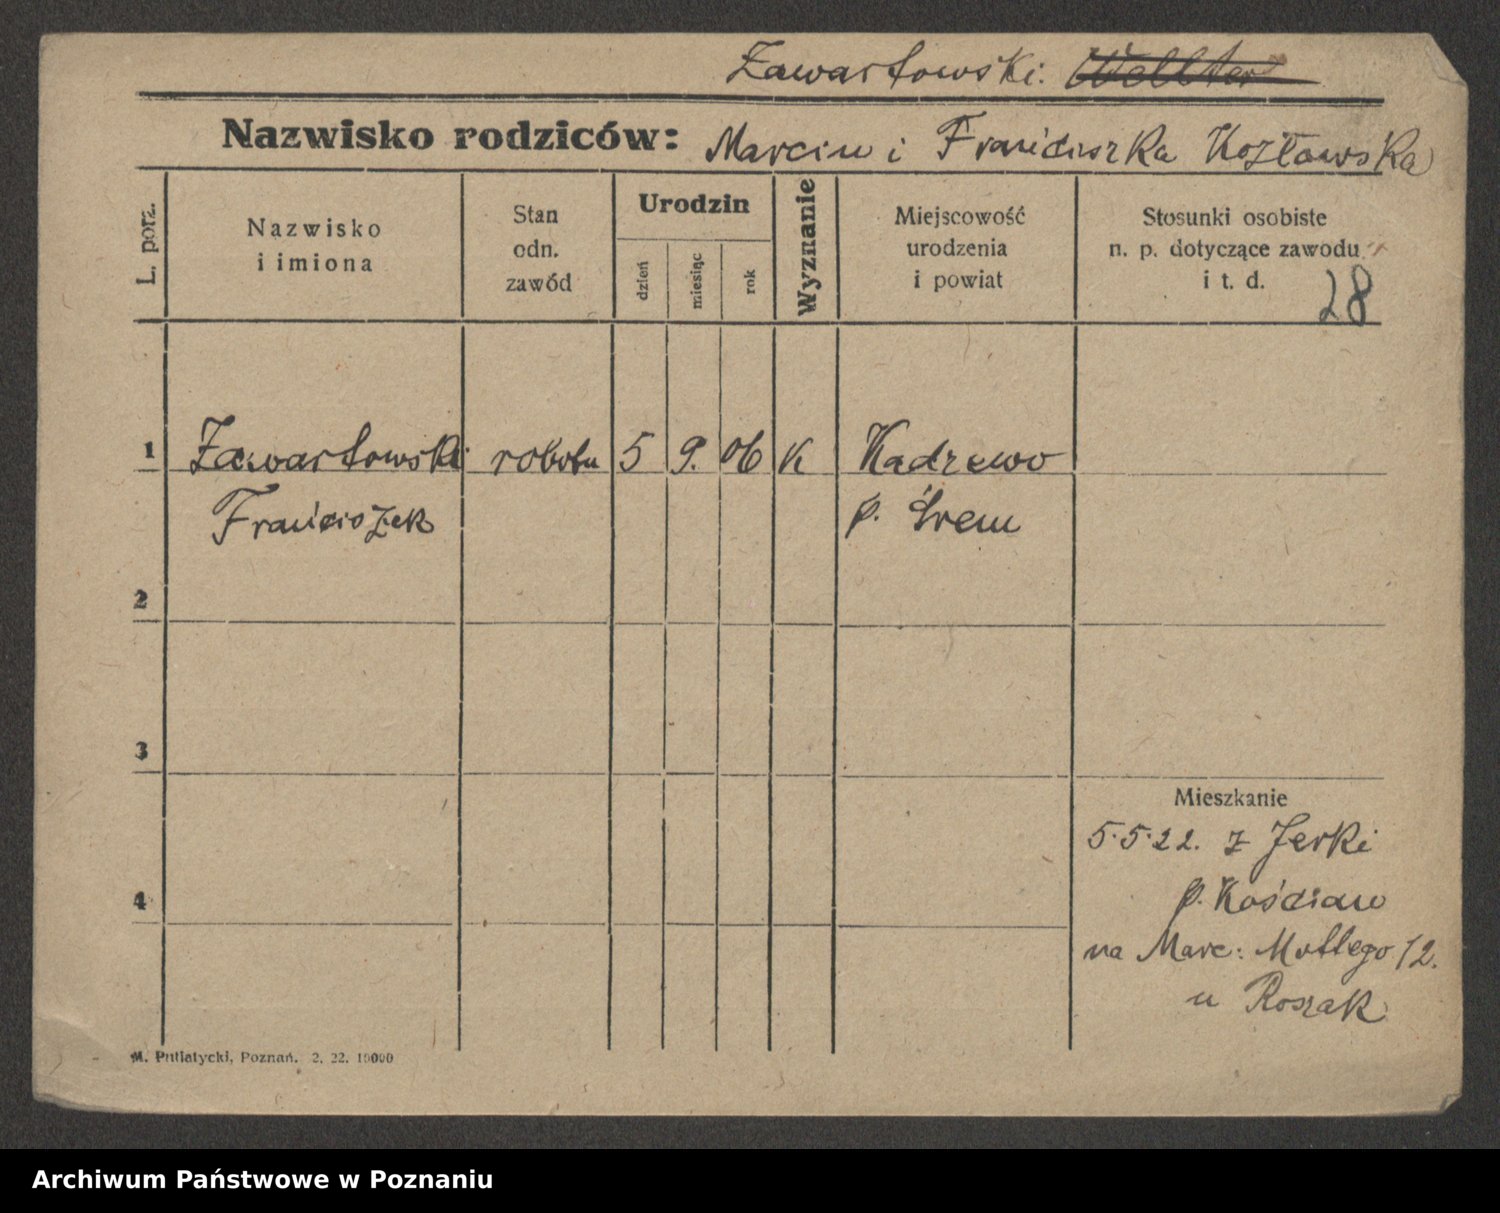 Zawartowski. Wellter
Nazwisko rodziców: Marcin i Franciszka Kozłowska
L. porz.
Nazwisko
i imiona
Stan
odn.
zawód
Urodzin
dzień
miesiąc
rok
Wyznanie
Miejscowość
urodzenia
i powiat
Stosunki osobiste
n. p. dotyczące zawodu
i t. d.
28
1 Zawartowski robotn 5 9. 06 K Kadzewo
Franciszek p. Śrem
2
3
Mieszkanie
5.5.22. z Jerki
4 p. Kościan
na Marc: Mottego 12.
u Roszak
M. Putiatycki, Poznań. 2. 22. 10000
Archiwum Państwowe w Poznaniu